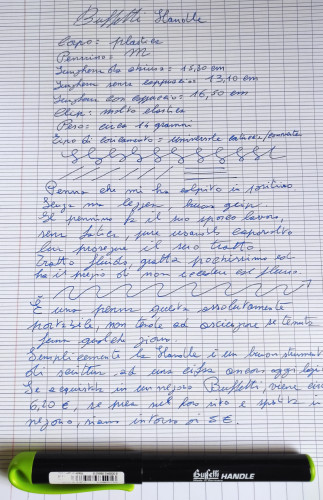 Buffetti Handle
Corpo: plastica
Pennino: M
Lunghezza da chiusa: 15,30 cm
Lunghezza senza cappuccio: 13,10 cm
Lunghezza con cappuccio: 16,50 cm
Clip: molto elastica
Peso: circa 14 grammi
Tipo di caricamento: universale cartucce/converter
Penna che mi ha colpito in positivo.
Senza ma leggera, buon grip.
Il pennino fa il suo sporco lavoro,
senza fatica, pure usandolo capovolto
ben prosegue il suo tratto.
Tratto fluido, gratta pochissimo ed
ha il pregio di non eccedere col flusso.
È una penna questa assolutamente
portabile, non tende ad asciugare se tenuta
ferma qualche giorno.
Semplicemente la Handle è un buon strumento
di scrittura, ad una cifra ancora oggi
Se acquistata in un negozio Buffetti, viene
6,20 €, se presa nel loro sito e spedita in
negozio, siamo intorno ai 5 €.
Buffetti HANDLE